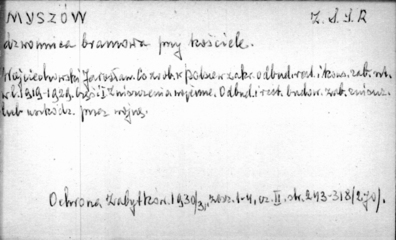 MYSZÓW Z.S.S.R
dzwonnica bramowa przy kościele.
Wojciechowski Jarosław. Co zrob. w Polsce w zakr. odbud. rest. i kons. zab. arch.
w l. 1919-1929. Część I Zniszczenia wojenne. Odbud. i rest. budow. zab. zniszcz.
lub uszkodz. przez wojnę.
Ochrona Zabytków. 1930/31, zesz. 1-4, cz. II. str. 243-318/270/.